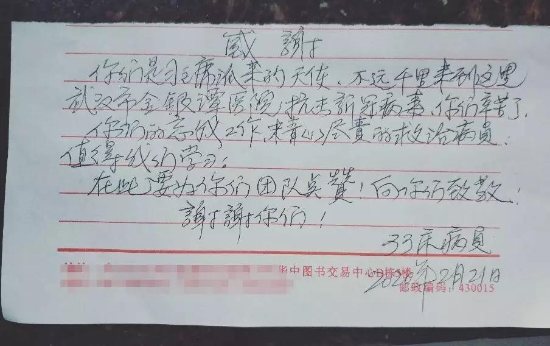 感謝
你们是习主席派来的天使、不远千里来到这里
武汉市金银潭医院,抗击新冠病毒,你们辛苦了
你们的忘我工作、兢心尽責的救治病員,
值得我们学习。
在此要为你们团队点赞!向你们致敬!
謝謝你们!
33床病員
2020年2月21日
华中图书交易中心
邮政编码:430015